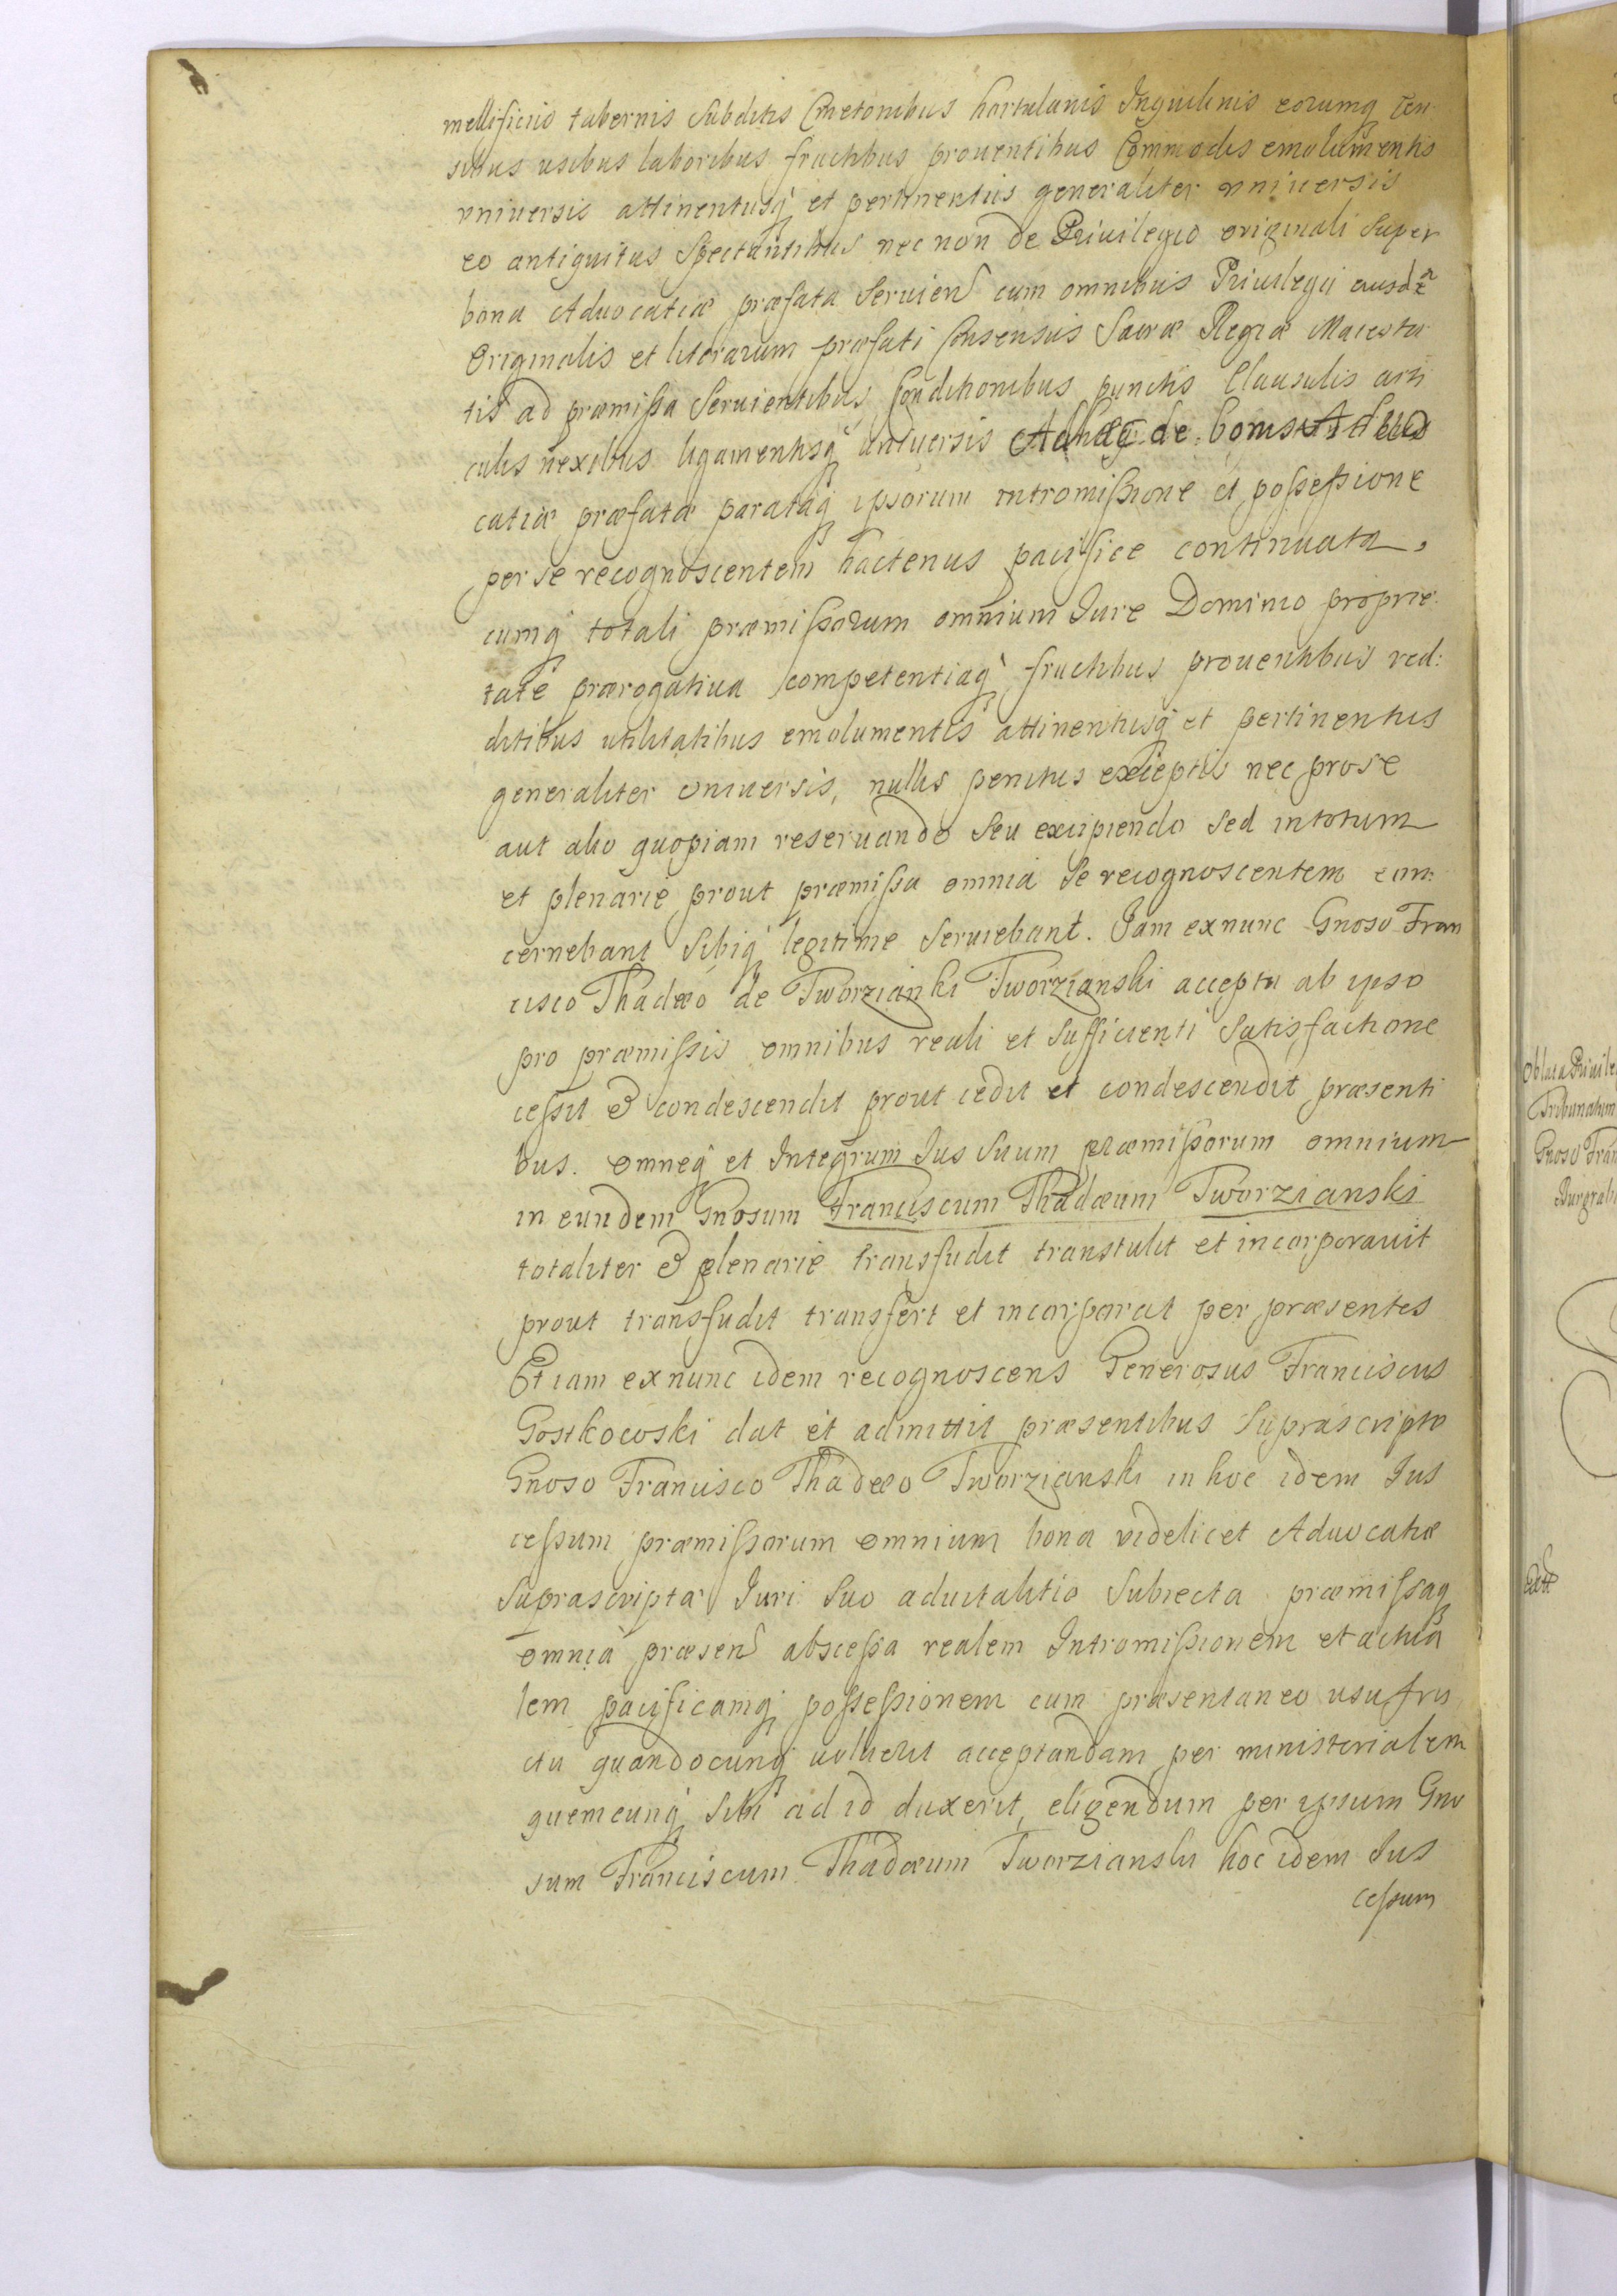 mellificiis tabernis subditis Cmetonibus hortulanis Inquilinis eorumq Cen
sibus usibus laboribus fructibus prouentibus Commodis emolumentis
vniuersis attinentijsq et pertinentiis generaliter vniuersis
eo antiquitus Spectantibus nec non de Priuilegio originali Super
bona Aduocatiæ præfata Seruien cum omnibus Priuilegij eiusdē
Originalis et literarum præfati Consensus Sacræ Regiæ Maiesta
tis ad præmissa Seruientibus Conditionibus punctis Clausulis arti
culis nexibus ligamentisq vniuersis Adhæc de bonis Aduo
catiæ præfatæ parataq ipsorum intromissione et possessione
per se recognoscentem hactenus pacifice continuata,
cumq totali præmissorum omnium Iure Dominio proprie
tate prærogatiua competentiaq fructibus prouentibus red:
ditibus utilitatibus emolumentis attinentijsq et pertinentiis
generaliter vniuersis, nullis penitus exceptis nec pro se
aut alio quopiam reseruando Seu excipiendo Sed in totum
et plenarie prout præmissa omnia Se recognoscentem con:
cernebant Sibiq legitime Seruiebant. Iam exnunc Gnoso Fran
cisco Thadæo de Tworzianki Tworzianski accepta ab ipso
pro præmissis omnibus reali et Sufficienti Satisfactione
cessit & condescendit prout cedit et condescendit præsenti
bus. omneq et Integrum Ius Suum præmissorum omnium
in eundem Gnosum Franciscum Thadæum Tworzianski
totaliter & plenarie transfudit transtulit et incorporauit
prout transfudit transfert et incorporat per præsentes
Et iam exnunc idem recognoscens Generosus Franciscus
Gostkowski dat et admittit præsentibus Suprascripto
Gnoso Francisco Thadæo Tworzianski in hoc idem Ius
cessum præmissorum omnium bona videlicet Aduocatiæ
Suprascripta Iuri Suo aduitalitio Subiecta præmissaq
omnia præsen abscessa realem Intromissionem et actua
lem pacificamq possessionem cum præsentaneo usufru
ctu quandocunq voluerit acceptandam per ministerialem
quemcunq Sibi ad id duxerit eligendum per ipsum Gno
sum Franciscum Thadæum Tworzianski hoc idem Ius
cessum
Oblata Priuile
Tribunatum
Gnoso Fran
Burgrab